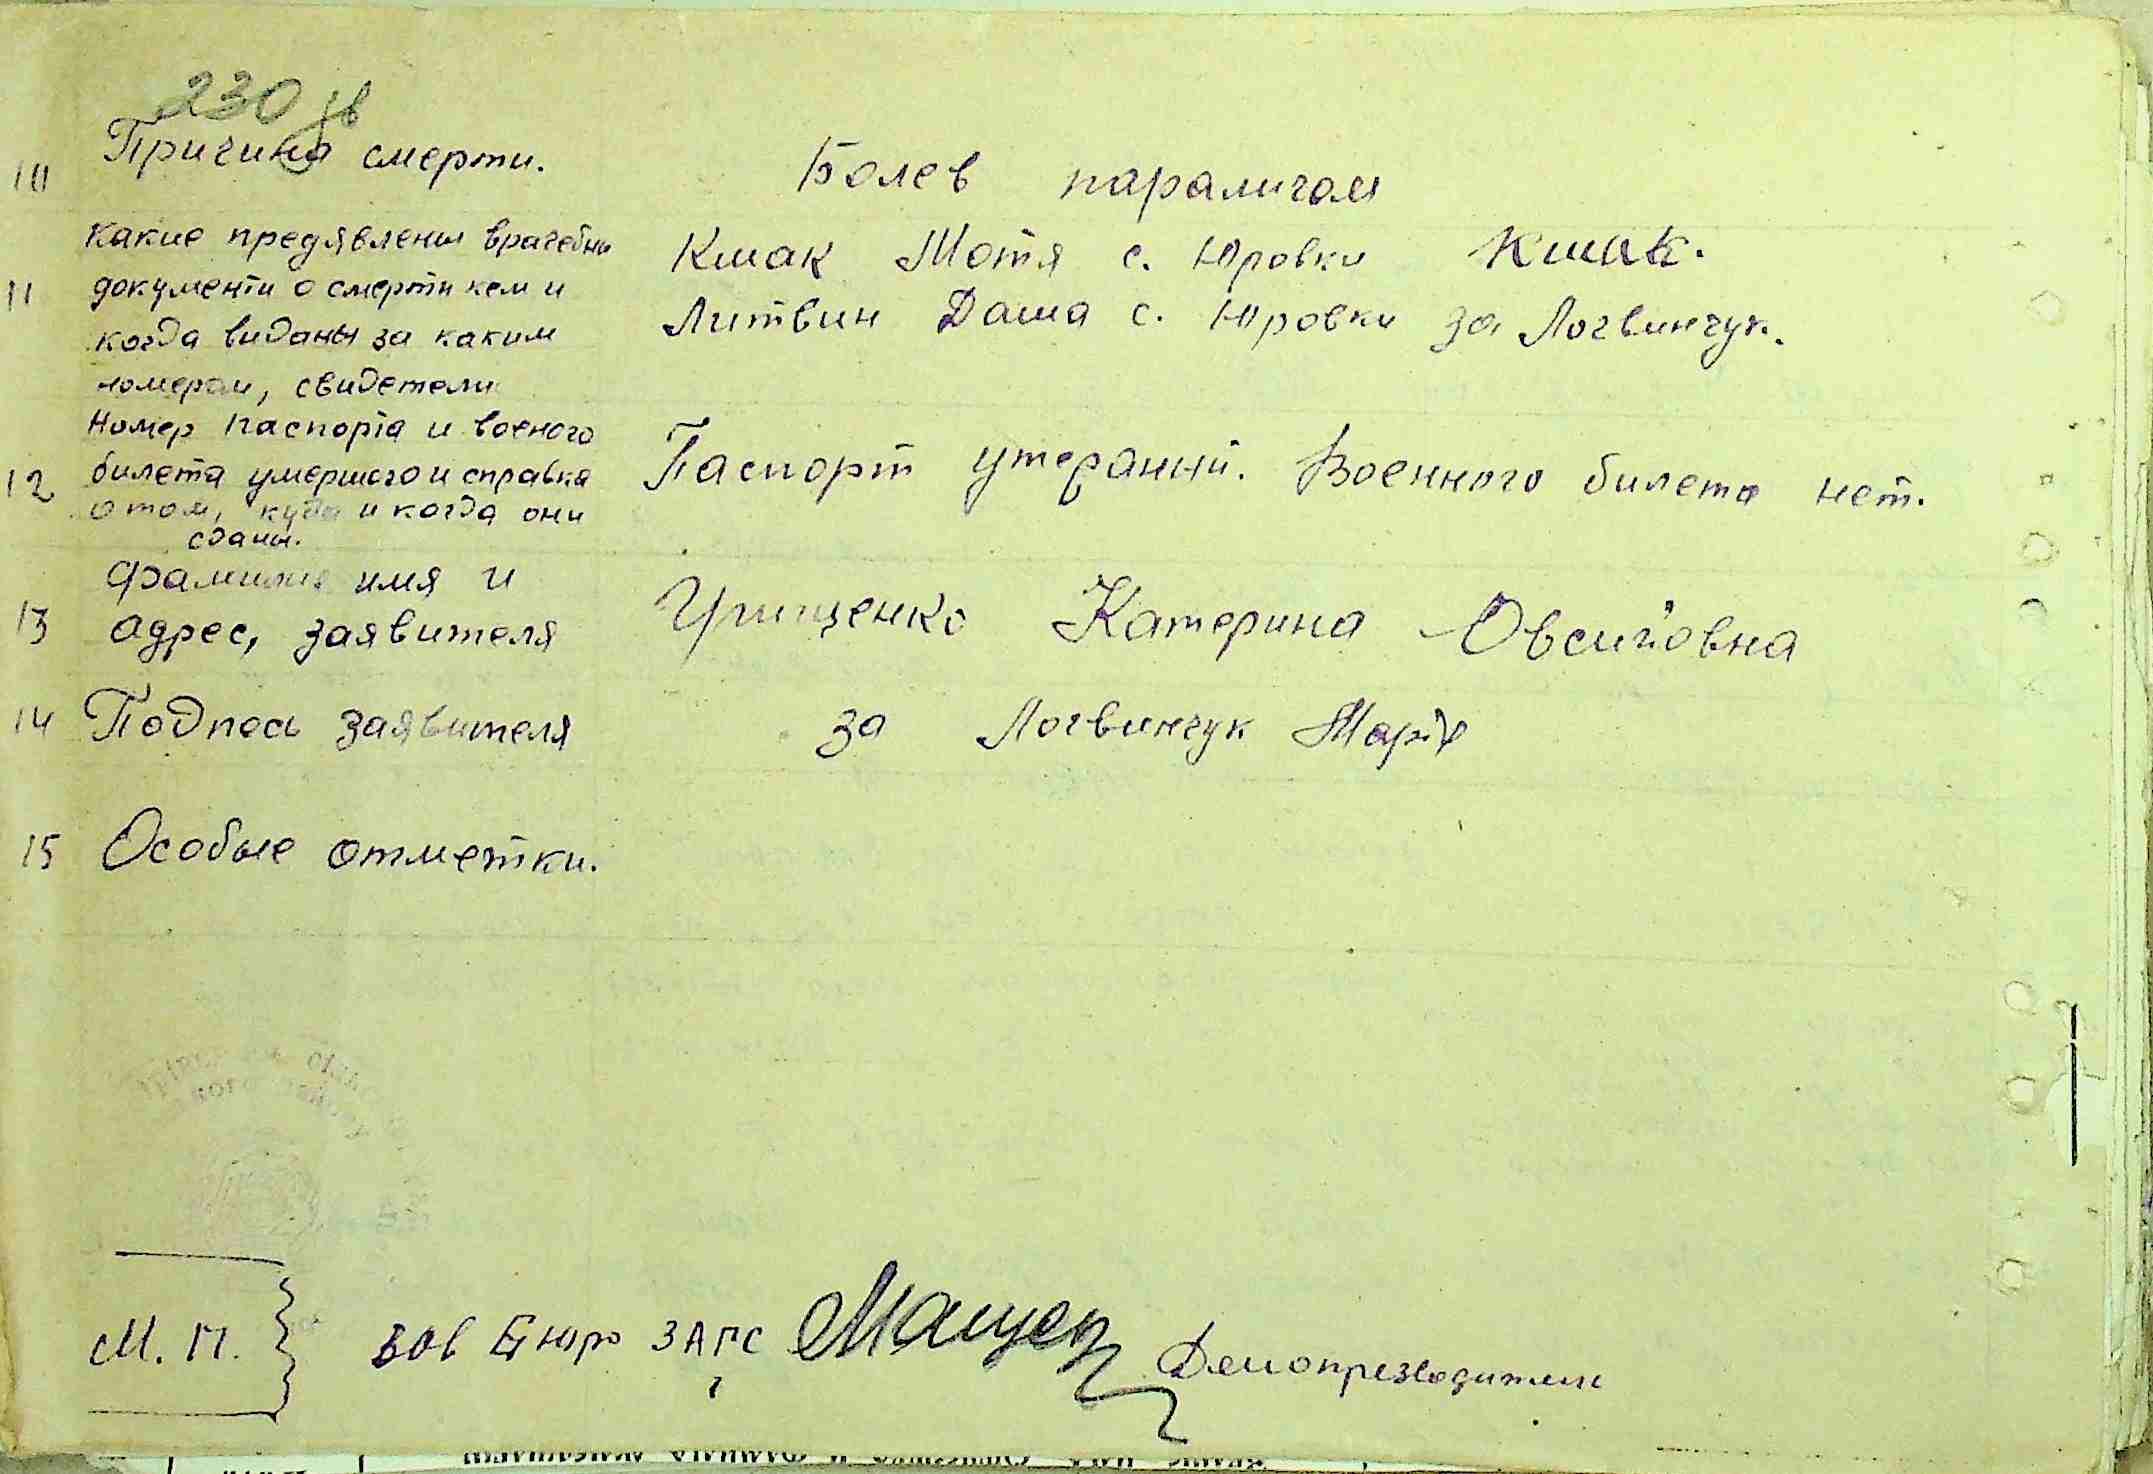 230 зв
10 Причина смерти. Болев параличом
11 Какие предявлены врачебны
документи о смерти кем и
когда виданы за каким
номером, свидетели
Кмак Мотя с. Юровки Кмак.
Литвин Даша с. Юровки за Логвинчук.
12 Номер паспорта и военого
билета умершого и справка
о том, куда и когда они
сданы.
Паспорт утеряний. Военного билета нет.
13 Фамилия имя и
адрес, заявителя
Грищенко Катерина Овсиёвна
14 Подпесь заявителя за Логвинчук Марія
15 Особые отметки.
М. П. Зав Бюро ЗАГС Делопрезводители